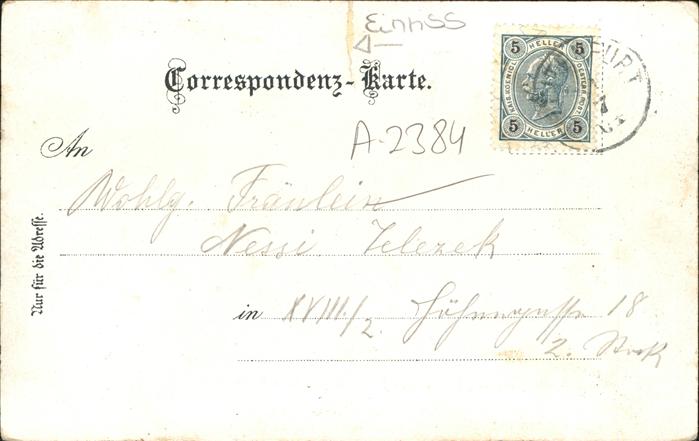 Einriss
Correspondenz-Karte.
5 HELLER 5
KAIS. KOENIGL. OESTERR. POST.
5 HELLER 5
FURT
A-2384
An
Wohlg. Fräulein
Nessi Jelezek
in XVIII/2.
18
2. Stock
Nur für die Adresse.